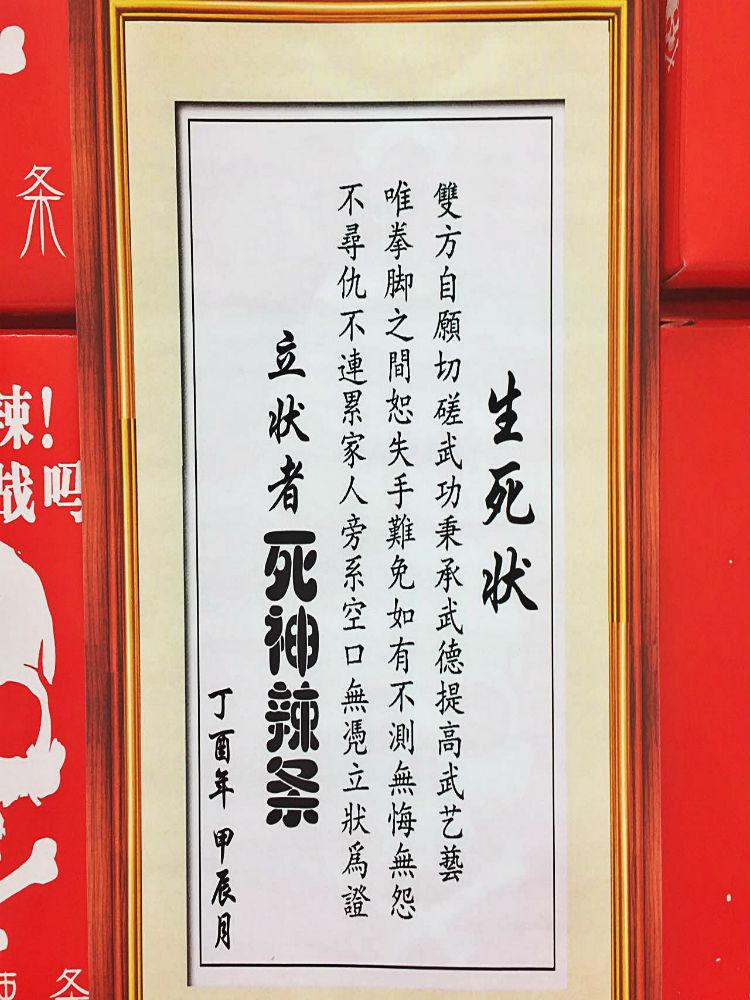 生死状
雙方自願切磋武功秉承武德提高武艺藝
唯拳脚之間恕失手難免如有不測無悔無怨
不尋仇不連累家人旁系空口無凴立狀爲證
立状者死神辣条
丁酉年甲辰月
条
辣!
战吗
条